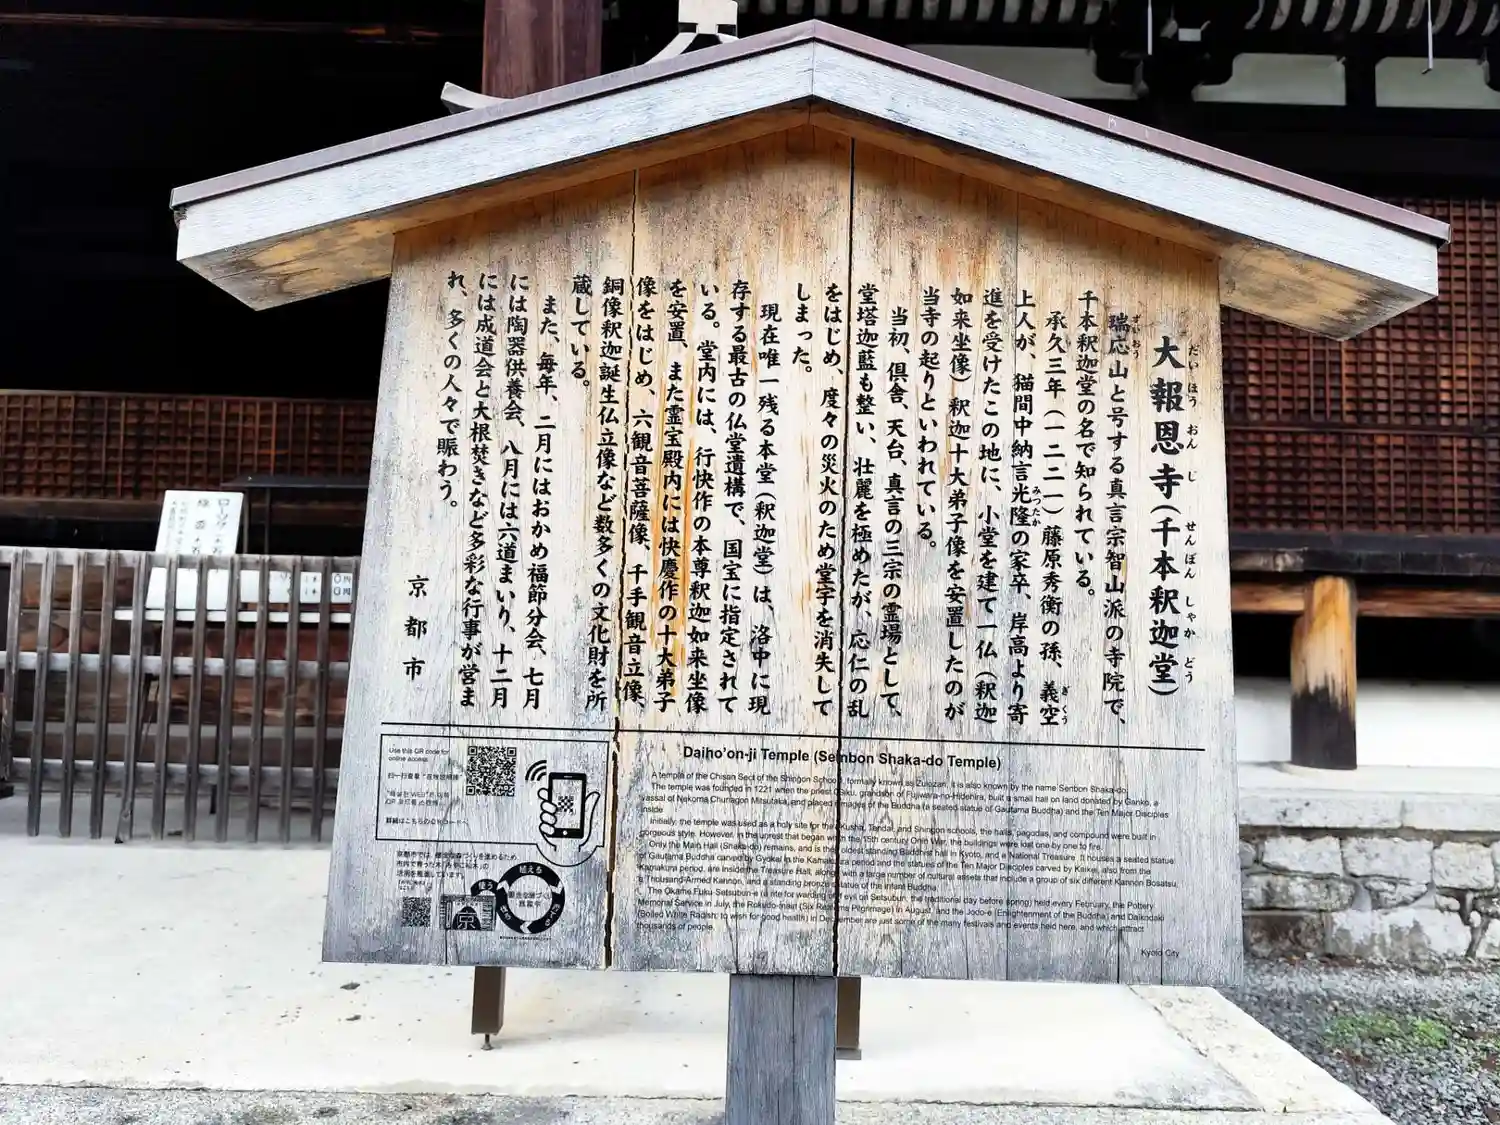 大報恩寺(千本釈迦堂)
だいほうおんじ せんぼんしゃかどう
瑞応山と号する真言宗智山派の寺院で、
ずいおう
千本釈迦堂の名で知られている。
承久三年(一二二一)藤原秀衡の孫、義空
ぎくう
上人が、猫間中納言光隆の家卒、岸高より寄
みつたか
進を受けたこの地に、小堂を建て一仏(釈迦
如来坐像)釈迦十大弟子像を安置したのが
当寺の起りといわれている。
当初、倶舎、天台、真言の三宗の霊場として、
堂塔迦藍も整い、壮麗を極めたが、応仁の乱
をはじめ、度々の災火のため堂宇を消失して
しまった。
現在唯一残る本堂(釈迦堂)は、洛中に現
存する最古の仏堂遺構で、国宝に指定されて
いる。堂内には、行快作の本尊釈迦如来坐像
を安置、また霊宝殿内には快慶作の十大弟子
像をはじめ、六観音菩薩像、千手観音立像、
銅像釈迦誕生仏立像など数多くの文化財を所
蔵している。
また、毎年、二月にはおかめ福節分会、七月
には陶器供養会、八月には六道まいり、十二月
には成道会と大根焚きなど多彩な行事が営ま
れ、多くの人々で賑わう。
京都市
Use this QR code for
online access.
詳細はこちらのQRコードへ
京
Daiho'on-ji Temple (Senbon Shaka-do Temple)
A temple of the Chisan Sect of the Shingon School, formally known as Zuiozan, it is also known by the name Senbon Shaka-do.
The temple was founded in 1221 when the priest Giku, grandson of Fujiwara-no-Hidehira, built a small hall on land donated by Ganko, a
vassal of Nekoma Chunagon Mitsutaka, and placed images of the Buddha (a seated statue of Gautama Buddha) and the Ten Major Disciples
inside.
Initially, the temple was used as a holy site for the Kusha, Tendai, and Shingon schools, the halls, pagodas, and compound were built in
gorgeous style. However, in the unrest that began with the 15th century Onin War, the buildings were lost one by one to fire.
Only the Main Hall (Shaka-do) remains, and is the oldest standing Buddhist hall in Kyoto, and a National Treasure. It houses a seated statue
of Gautama Buddha carved by Gyokai in the Kamakura period and the statues of the Ten Major Disciples carved by Kaikei, also from the
Kamakura period, are inside the Treasure Hall, along with a large number of cultural assets that include a group of six different Kannon Bosatsu,
a Thousand-Armed Kannon, and a standing bronze statue of the infant Buddha.
The Okame Fuku Setsubun-e (a rite for warding off evil on Setsubun, the traditional day before spring) held every February, the Pottery
Memorial Service in July, the Rokudo-mairi (Six Realms Pilgrimage) in August, and the Jodo-e (Enlightenment of the Buddha) and Daikodaki
(Boiled White Radish; to wish for good health) in December are just some of the many festivals and events held here, and which attract
thousands of people.
Kyoto City